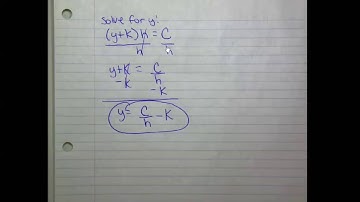 solve for y:
(y+K)h = C
h h
y+K = C/h
-K -K
y = C/h - K